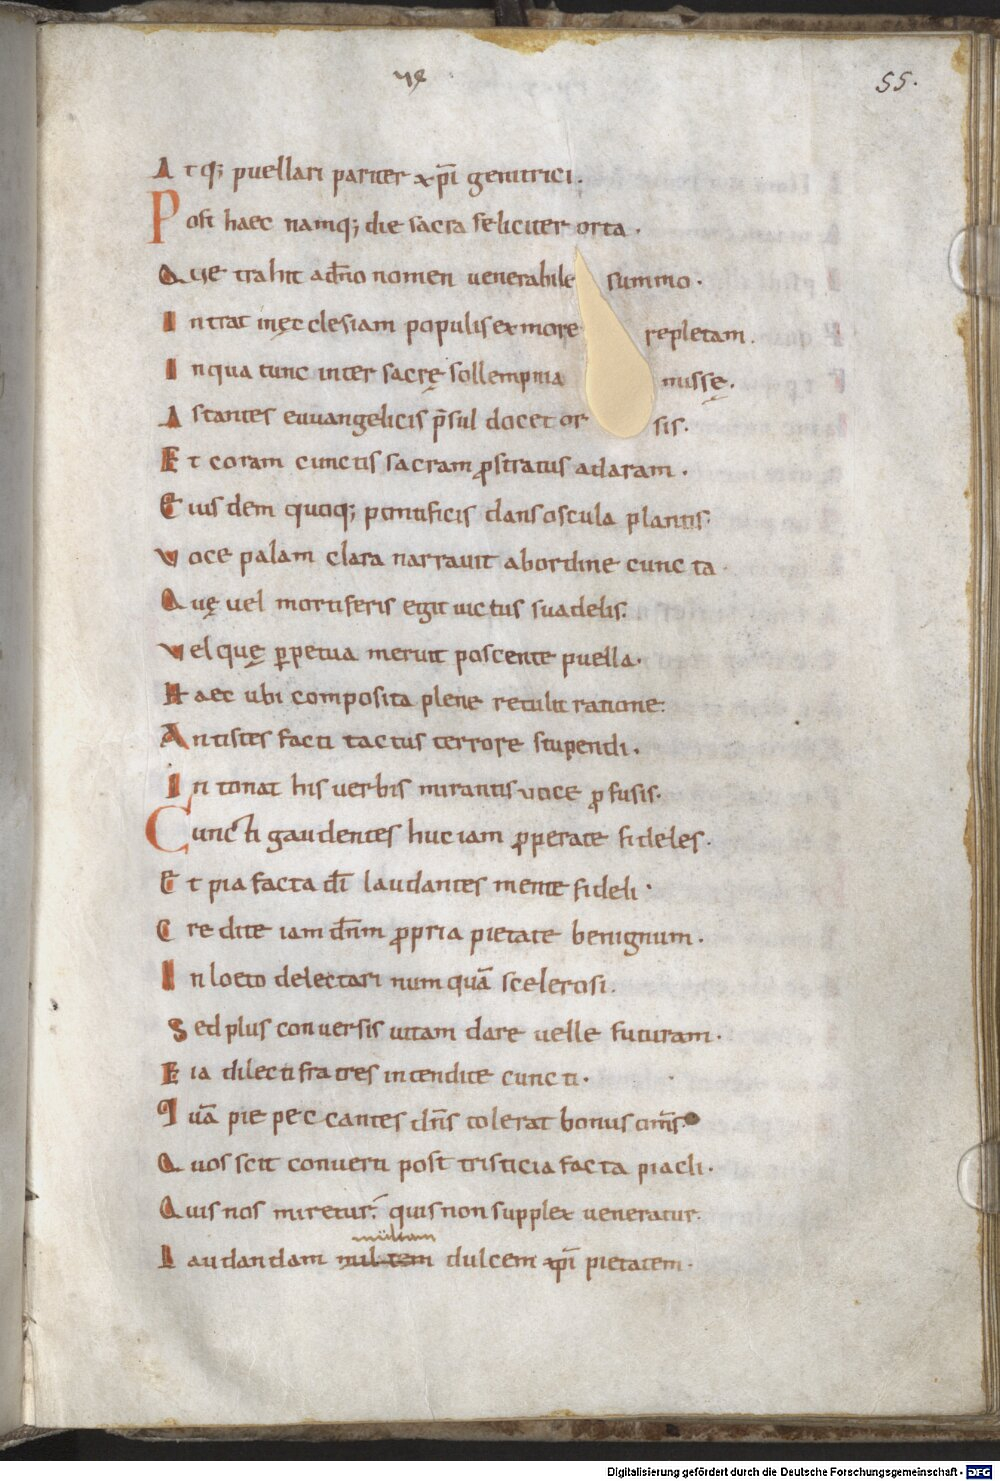 55.
Atq; puellari pariter xp̄i genitrici.
Post haec namq; die sacra feliciter orta.
Quę trahit ad dn̄o nomen venerabile summo.
Intrat inęcclesiam populis ex more repletam.
In qua tunc inter sacrę sollempnia missę.
Astantes euuangelicis p̄sul docet orsis.
Et coram cunctis sacram prostratus ad aram.
Eius dem quoq; pontificis dans oscula plantis.
Voce palam clara narrauit ab ordine cuncta.
Quę uel mortiferis egit uictus suadelis.
Vel quę perpetua meruit poscente puella.
Haec ubi composita plene retulit ratione.
Antistes facti tactus terrore stupendi.
Intonat his uerbis mirantis uoce profusis.
Cuncti gaudentes huc iam properate fideles.
Et pia facta dī laudantes mente fideli.
Credite iam dn̄m propria pietate benignum.
In loeto delectari numquā scelerosi.
Sed plus conuersis uitam dare uelle futuram.
Eia dilecti fratres intendite cuncti.
Quā pie peccantes dn̄s tolerat bonus om̄s.
Quos scit conuerti post tristicia facta piacli.
Quis nos miretur? quis non supplex ueneratur.
multam
Laudandam dulcem xp̄i pietatem.
Digitalisierung gefördert durch die Deutsche Forschungsgemeinschaft - DFG